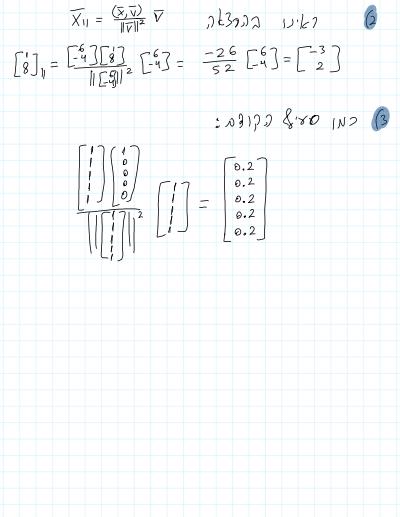 (2 ראינו בהרצאה x̄₁₁ = (x̄,v̄)/‖v̄‖² v̄
[1 8]₁₁ = [-6 -4][1 8]/‖[-6 -4]‖² [-6 -4] = -26/52 [6 -4] = [-3 2]
(3 כמו סעיף הקודם:
[1 1 1 1 1][1 0 0 0 0]/‖[1 1 1 1 1]‖² [1 1 1 1 1] = [0.2 0.2 0.2 0.2 0.2]